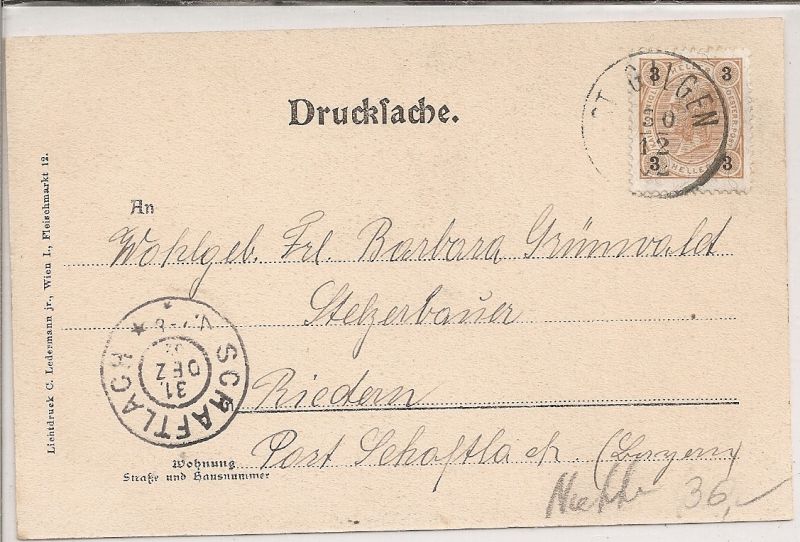 Drucksache.
3 HELLER 3
3 HELLER 3
ST. GILGEN
30
12
An
Wohlgeb. Frl. Barbara Grünwald
Stelzerbauer
Riedern
Post Schaftlach. (Bayern)
Wohnung
Straße und Hausnummer
SCHAFTLACH
31.
DEZ
V. 7-8
Lichtdruck C. Ledermann jr., Wien I., Fleischmarkt 12.
36,-